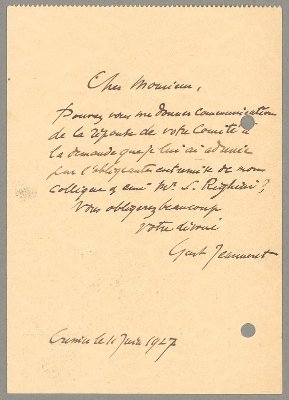 Cher Monsieur,
Pouvez vous me donner communication
de la réponse de votre Comité à
la demande que je lui ai adressée
par l'obligeante entremise de notre
collègue & ami Mr. S. Righini?
Vous obligerez beaucoup
votre dévoué
Gust Jeanneret
le 11 Juin 1927